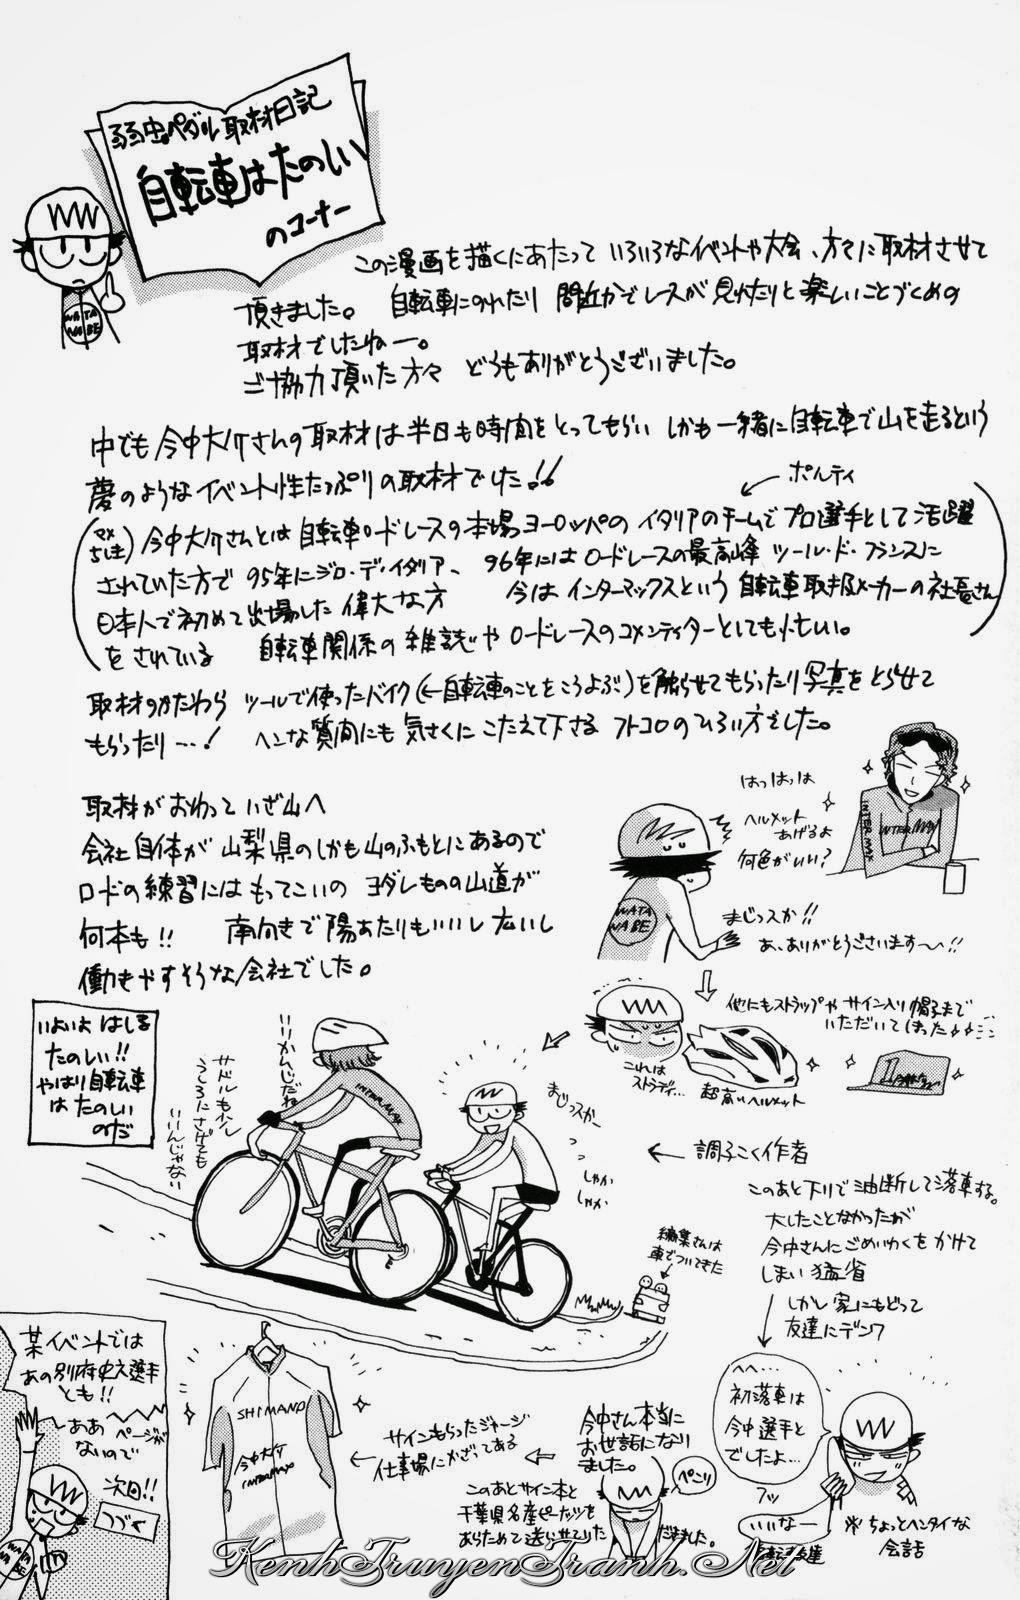 弱虫ペダル取材日記
自転車はたのしい
のコーナー
WATA
NABE
この漫画を描くにあたって いろいろなイベントや大会、方々に取材させて
頂きました。 自転車にのれたり 間近かでレースが見れたりと楽しいことづくめの
取材でしたねー。
ご協力頂いた方々 どうもありがとうございました。
中でも今中大介さんの取材は半日も時間をとってもらい しかも一緒に自転車で山を走るという
夢のようなイベント性たっぷりの取材でした!!
ポルティ
今中大介さんとは自転車ロードレースの本場ヨーロッパのイタリアのチームでプロ選手として活躍
されていた方で 95年にジロ・デ・イタリア、 96年にはロードレースの最高峰 ツール・ド・フランスに
日本人で初めて出場した偉大な方 今はインターマックスという自転車取扱メーカーの社長さん
をされている 自転車関係の雑誌やロードレースのコメンテイターとしても忙しい。
取材のかたわら ツールで使ったバイク(←自転車のことをこうよぶ)を触らせてもらったり写真をとらせて
もらったり…! ヘンな質問にも気さくにこたえて下さる フトコロのひろい方でした。
取材がおわって いざ山へ
会社自体が山梨県のしかも山のふもとにあるので
ロードの練習にはもってこいの ヨダレものの山道が
何本も!! 南向きで陽あたりもいいし 広いし
働きやすそうな会社でした。
はっはっは
ヘルメット
あげるよ
何色がいい?
INTER MAX
INTERMAX
WATA
NABE
まじっスか!!
あ、ありがとうございます〜!!
他にもストラップや サイン入り帽子まで
いただいてしまった
これは
ストラディ…
超高いヘルメット
いよいよ はしる
たのしい!!
やはり自転車
はたのしい
のだ
いいかんじだね
サドルも少し
うしろにさげても
いいんじゃない
INTERMAX
まじっスかー
しゃか
しゃか
← 調子こく作者
このあと下りで油断して落車する。
大したことなかったが
今中さんにごめいわくをかけて
しまい猛省
しかし家にもどって
友達にデンワ
編集さんは
車でついてきた
へへ…
初落車は
今中選手と
でしたよ…
フッ
いいなー
自転車友達
※ちょっとヘンタイな
会話
今中さん本当に
お世話になり
ました。
ぺこり
このあとサイン本と
千葉県名産ピーナッツを
あらためて送らせていた
だきました。
サインもらったジャージ
仕事場にかざってある
SHIMANO
今中大介
INTERMAX
某イベントでは
あの別府史之選手
とも!!
しああ ページが
ないので
次回!!
つづく
KenhTruyenTranh.Net